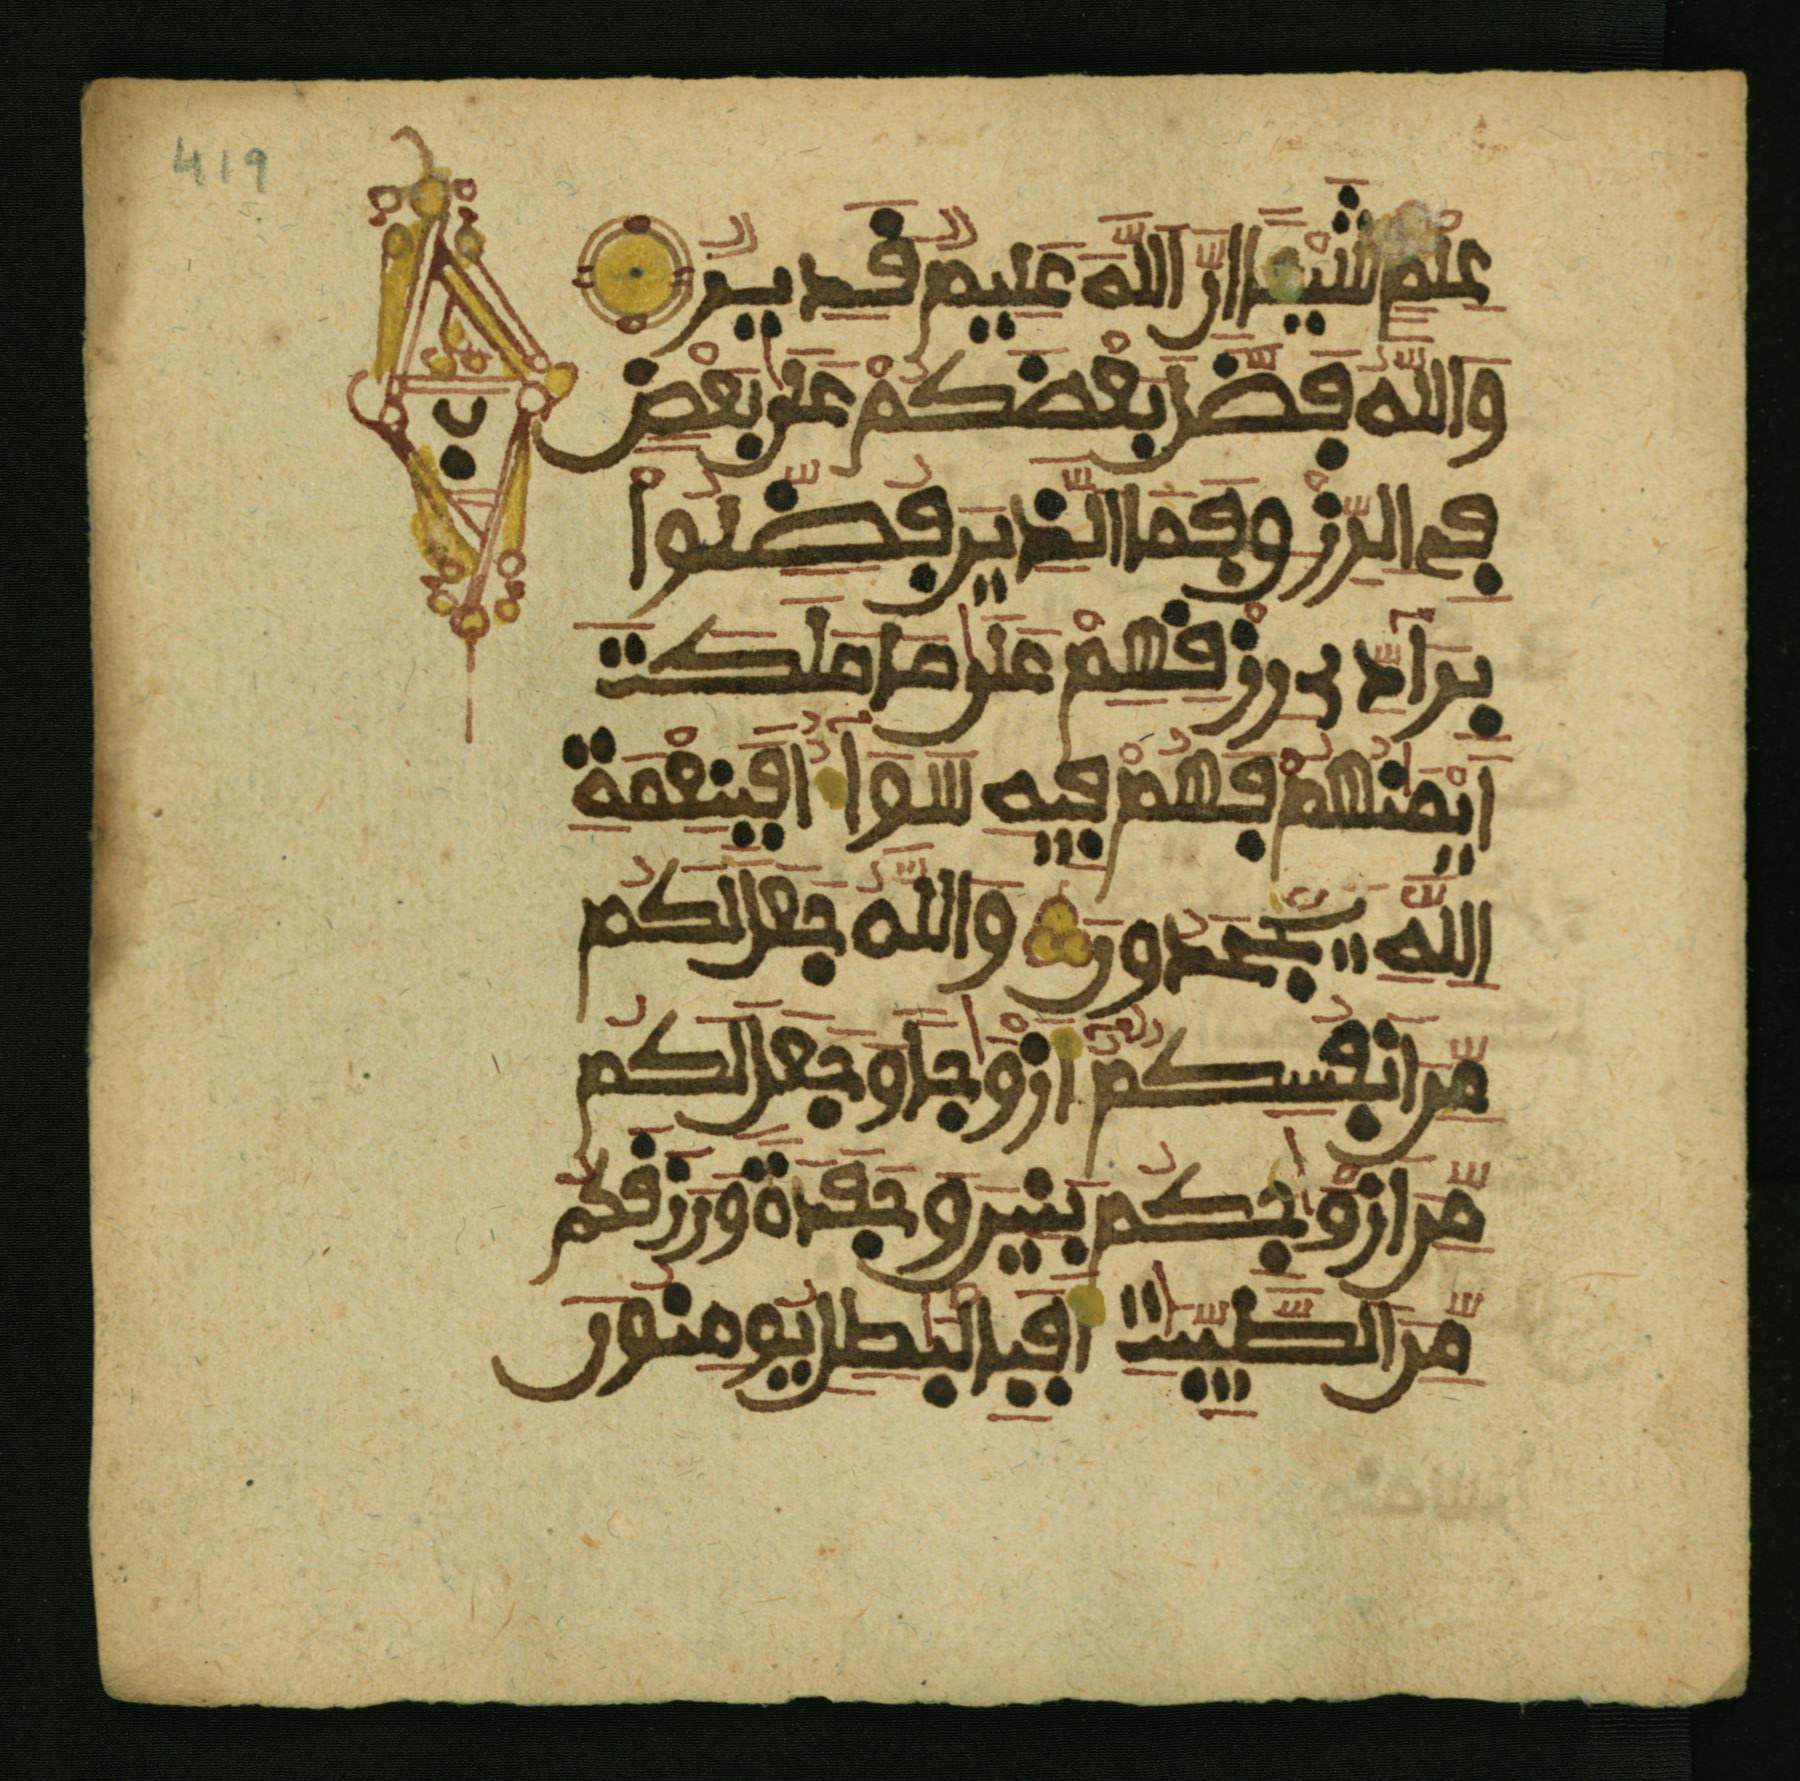 419
علم شيـا ان الله عليم قدير
والله فضل بعضكم على بعض
في الرزق فما الذين فضلوا
برادي رزقهم على ما ملكت
ايمنهم فهم فيه سوا افبنعمة
الله يجحدون والله جعل لكم
من انفسكم ازوجا وجعل لكم
من ازوجكم بنين وحفدة ورزقكم
من الطيبت افبالبطل يومنون